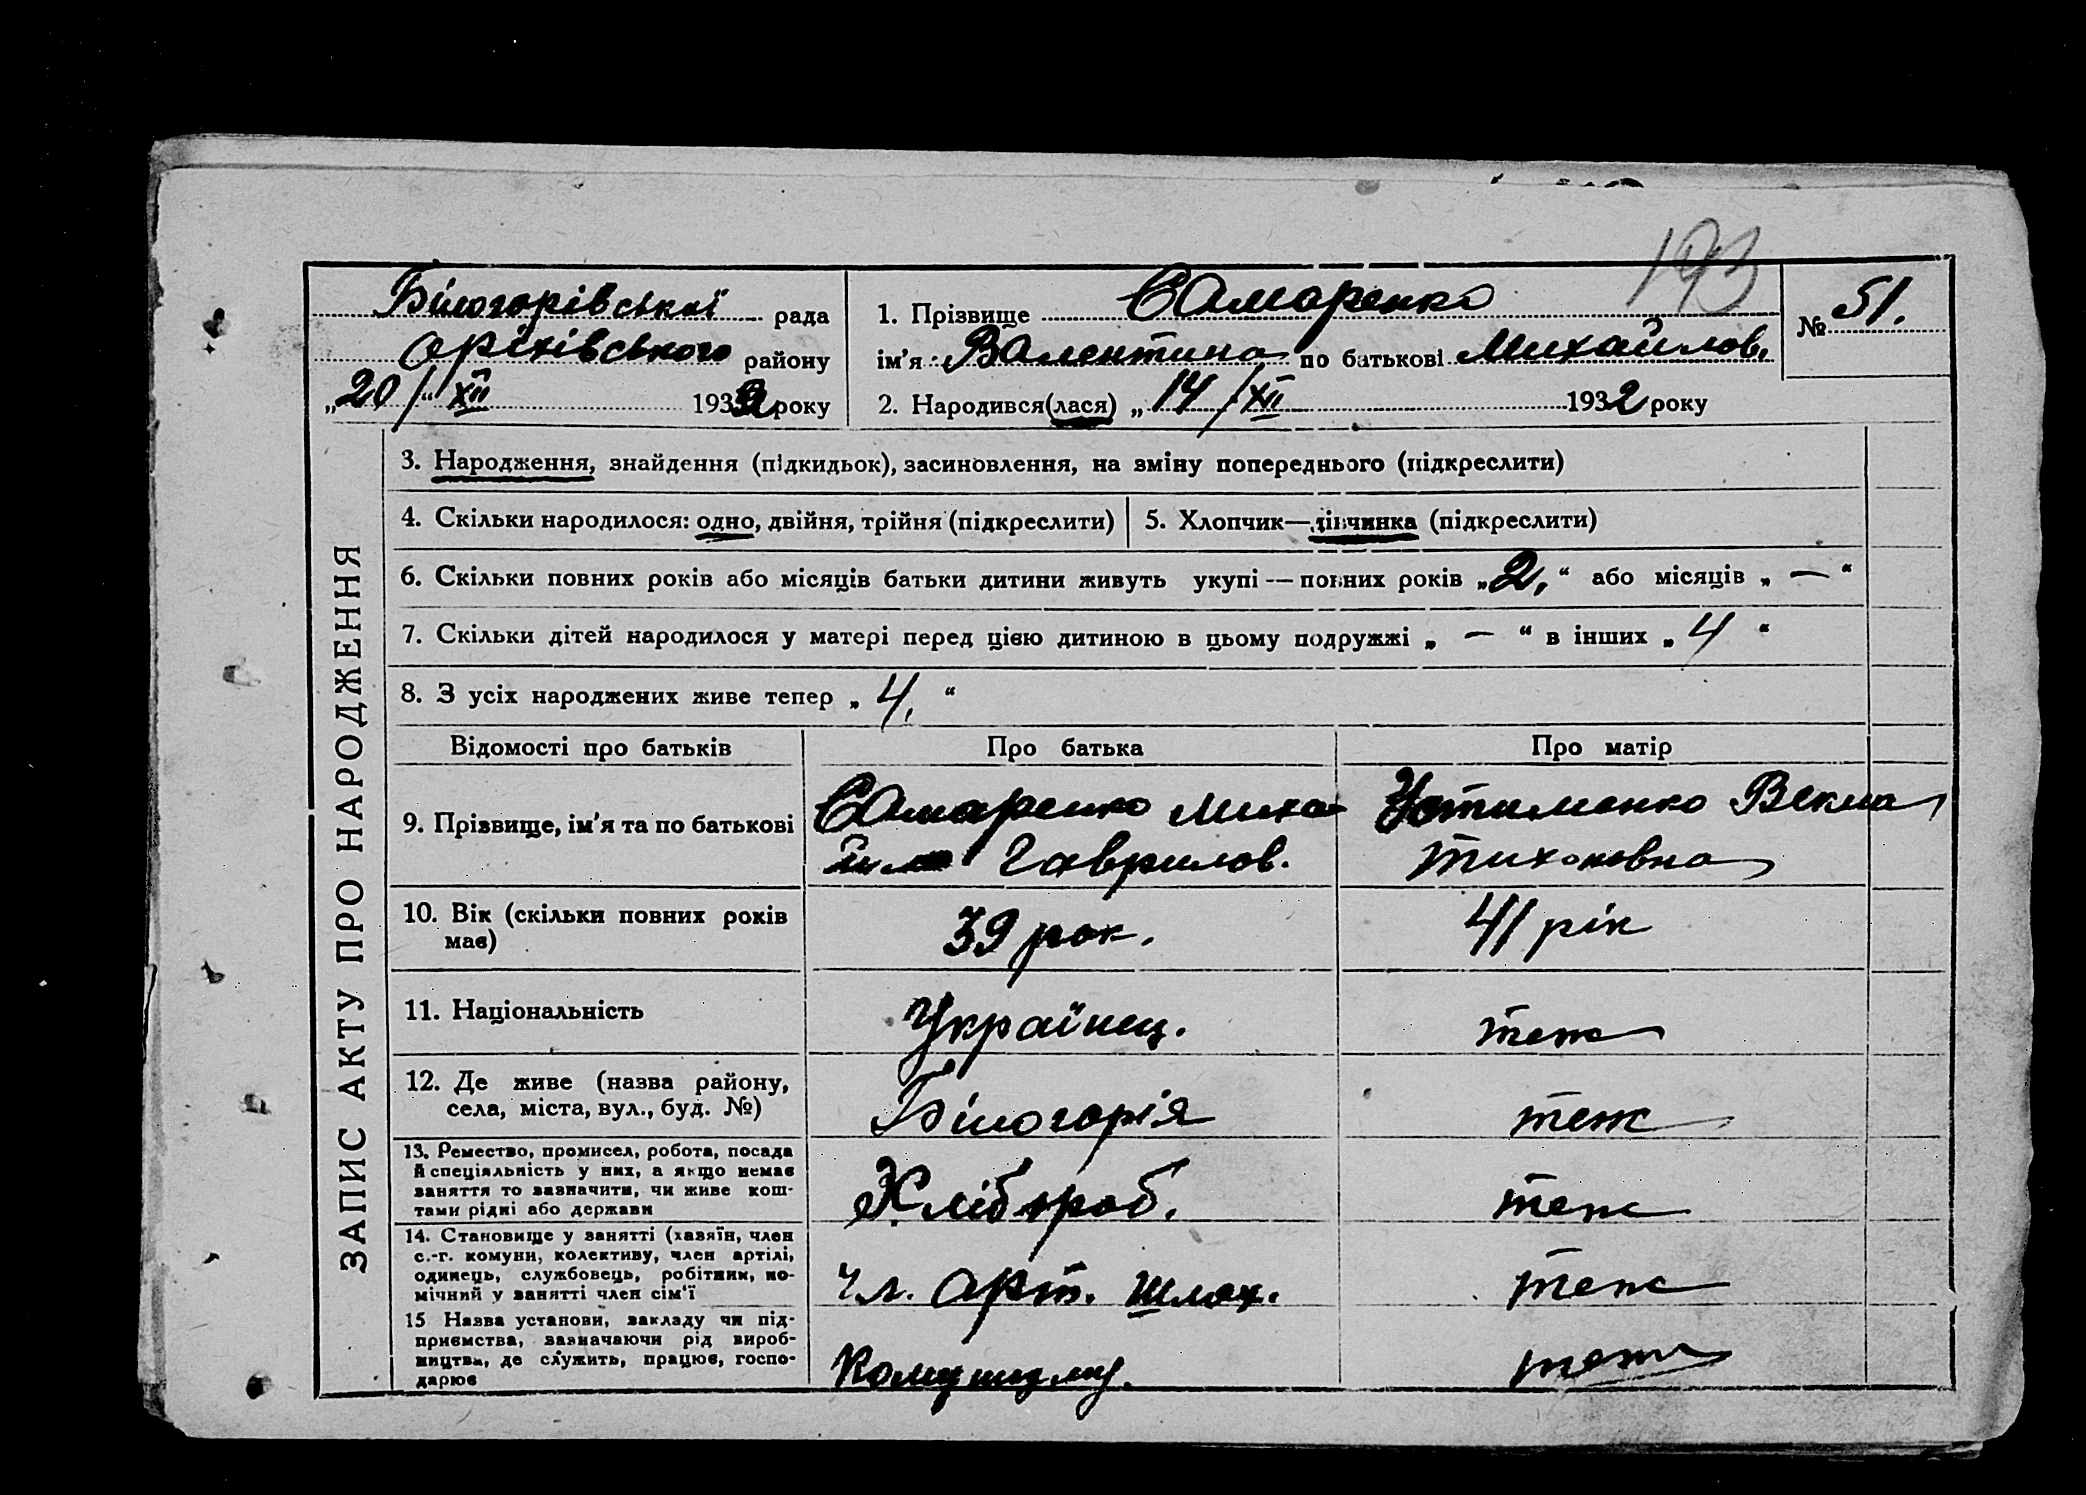 193
Білогорівської рада
Оріхівського району
„20/“ XII 1932 року
1. Прізвище Самаренко
ім'я Валентина по батькові Михайлов.
2. Народився(лася) „14/XII 1932 року
№ 51.
ЗАПИС АКТУ ПРО НАРОДЖЕННЯ
3. Народження, знайдення (підкидьок), засиновлення, на зміну попереднього (підкреслити)
4. Скільки народилося: одно, двійня, трійня (підкреслити)
5. Хлопчик—дівчинка (підкреслити)
6. Скільки повних років або місяців батьки дитини живуть укупі — повних років „2,“ або місяців „—“
7. Скільки дітей народилося у матері перед цією дитиною в цьому подружжі „—“ в інших „4“
8. З усіх народжених живе тепер „4.“
Відомості про батьків
Про батька
Про матір
9. Прізвище, ім'я та по батькові
Самаренко Миха
йло Гаврилов.
Устименко Векла
Тихоновна
10. Вік (скільки повних років
має)
39 рок.
41 рік
11. Національність
Українец.
теж
12. Де живе (назва району,
села, міста, вул., буд. №)
Білогорія
теж
13. Ремество, промисел, робота, посада
й спеціяльність у них, а якщо немає
заняття то зазначити, чи живе кош-
тами рідні або держави
Хлібороб.
теж
14. Становище у занятті (хазяїн, член
с.-г. комуни, колективу, член артілі,
одинець, службовець, робітник, по-
мічний у занятті член сім'ї
Чл. Арт. Шлях.
теж
15 Назва установи, закладу чи під-
приємства, зазначаючи рід вироб-
ництва, де служить, працює, госпо-
дарює
Комунизму.
теж